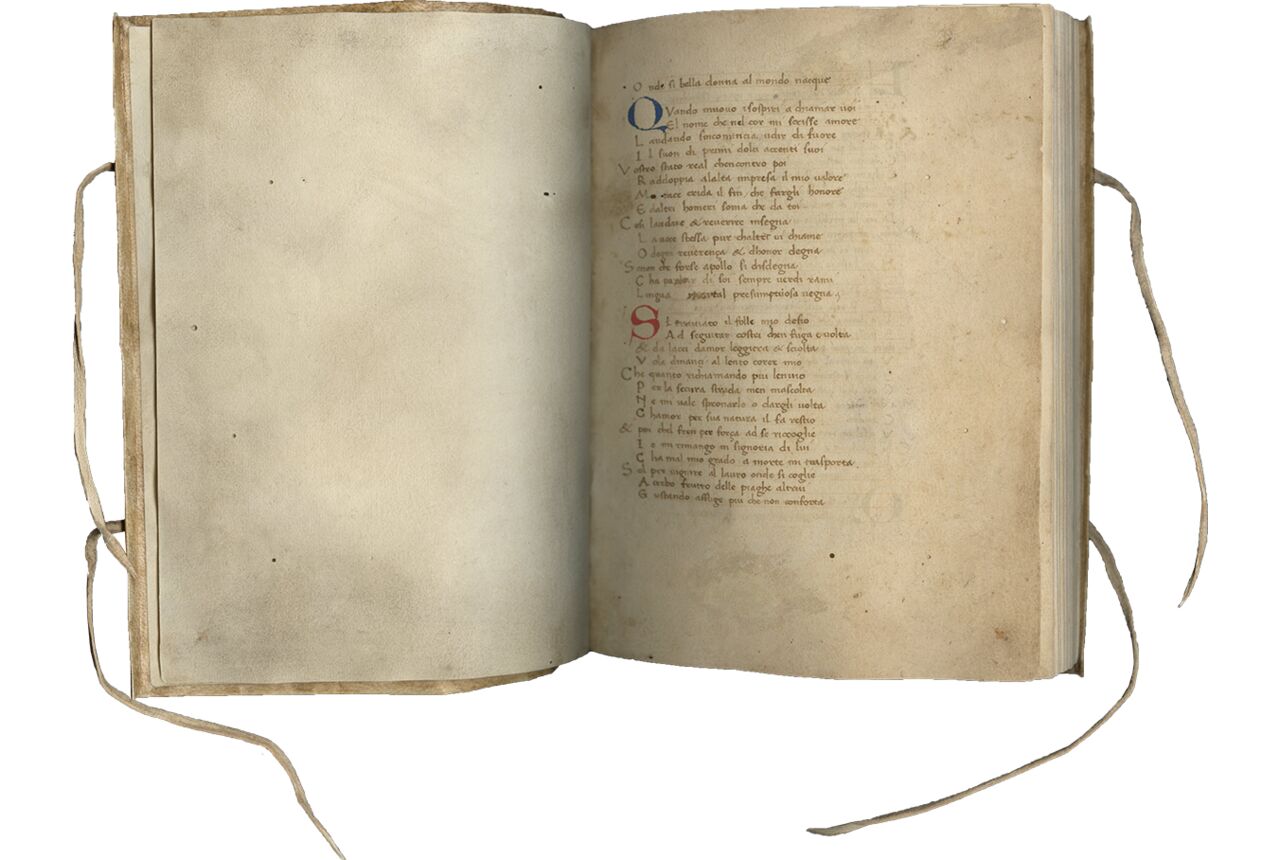 O nde si bella donna al mondo nacque
QVando muovo i sospiri a chiamar voi
El nome che nel cor mi scrisse amore
L audando sincomincia udir di fuore
I l suon di primi dolci accenti suoi
V ostro stato real chencontro poi
R addoppia alalta impresa il mio valore
M a tace crida il fin che fargli honore
E daltri homeri soma che da toi
C osi laudare & reverire insegna
L a voce stessa pur chaltri vi chiame
O dogni reverença & dhonor degna
S e non che forse apollo si disdegna
C ha parlar di soi sempre verdi rami
L ingua mortal presumptuosa vegna
SI traviato il folle mio desio
A d seguitar costei chen fuga e volta
& da lacci damor leggiera & sciolta
V ola dinanci al lento correr mio
C he quanto richiamando piu lenvio
P er la secura strada men mascolta
N e mi vale spronarlo o dargli volta
C hamor per sua natura il fa restio
& poi chel fren per força ad se riccoglie
I o mi rimango in signoria di lui
C ha mal mio grado a morte mi trasporta
S ol per vignire al lauro onde si coglie
A cerbo frutto delle piaghe altrui
G ustando afflige piu che non conforta